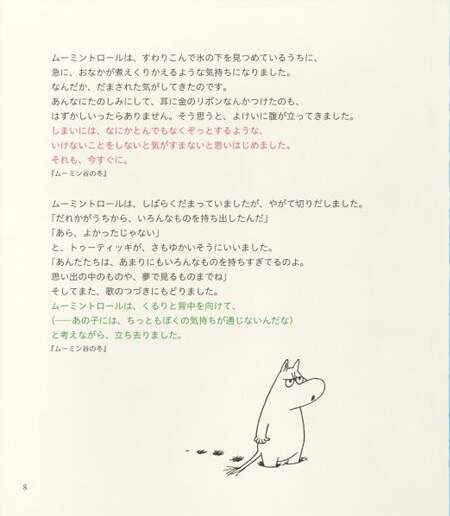 ムーミントロールは、すわりこんで氷の下を見つめているうちに、
急に、おなかが煮えくりかえるような気持ちになりました。
なんだか、だまされた気がしてきたのです。
あんなにたのしみにして、耳に金のリボンなんかつけたのも、
はずかしいったらありません。そう思うと、よけいに腹が立ってきました。
しまいには、なにかとんでもなくぞっとするような、
いけないことをしないと気がすまないと思いはじめました。
それも、今すぐに。
『ムーミン谷の冬』
ムーミントロールは、しばらくだまっていましたが、やがて切りだしました。
「だれかがうちから、いろんなものを持ち出したんだ」
「あら、よかったじゃない」
と、トゥーティッキが、さもゆかいそうにいいました。
「あんたたちは、あまりにもいろんなものを持ちすぎてるのよ。
思い出の中のものや、夢で見るものまでね」
そしてまた、歌のつづきにもどりました。
ムーミントロールは、くるりと背中を向けて、
(——あの子には、ちっともぼくの気持ちが通じないんだな)
と考えながら、立ち去りました。
『ムーミン谷の冬』
8